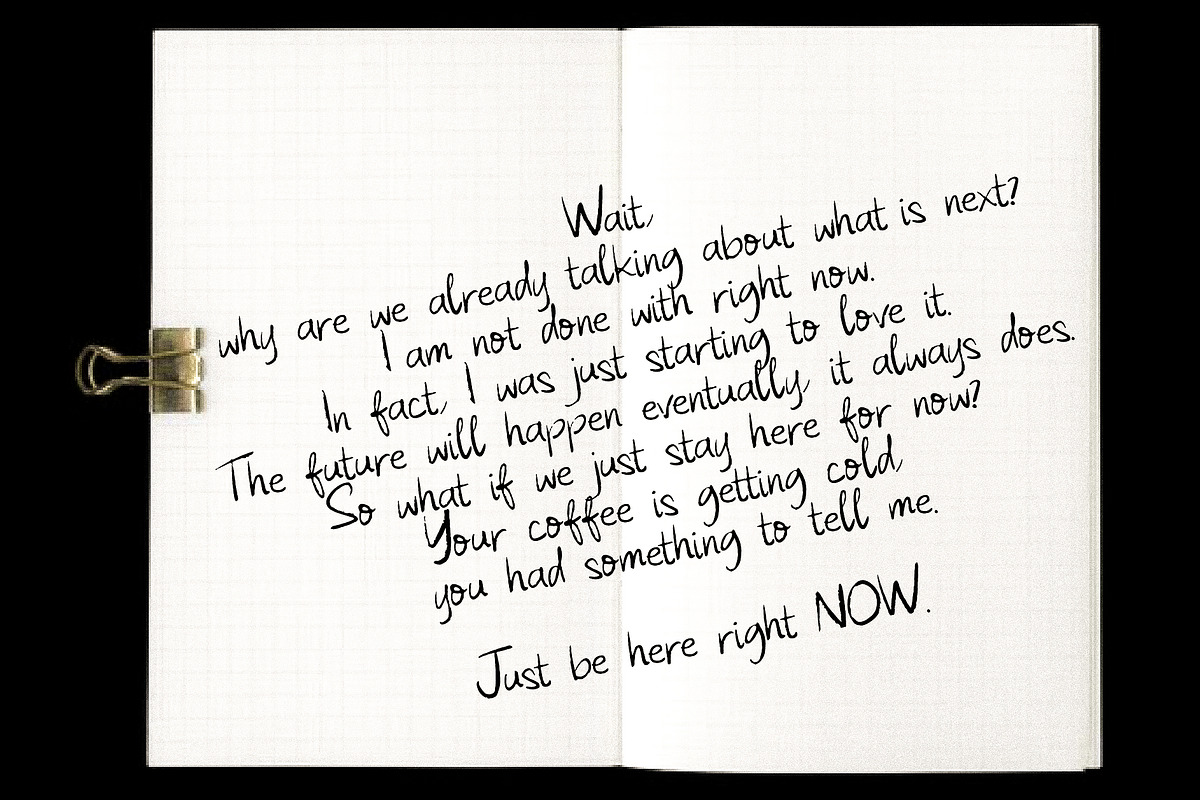 Wait,
why are we already talking about what is next?
I am not done with right now.
In fact, I was just starting to love it.
The future will happen eventually, it always does.
So what if we just stay here for now?
Your coffee is getting cold,
you had something to tell me.
Just be here right NOW.